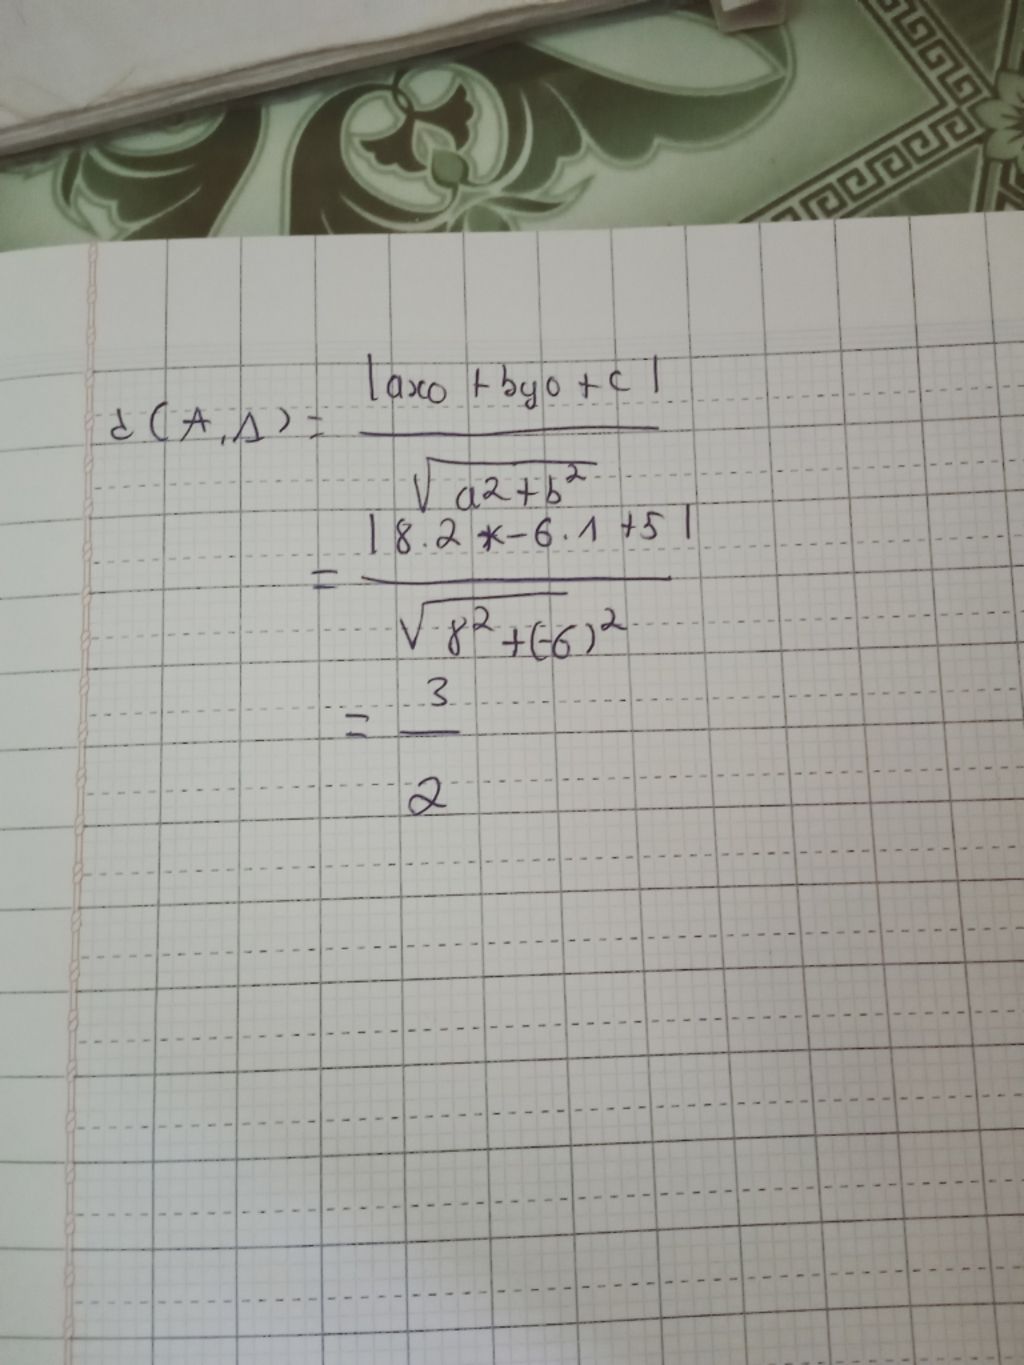 d(A,Δ) = |ax0 + by0 + c|
√a2+b²
= |8.2 x-6.1 +5|
√8²+(-6)²
= 3
2